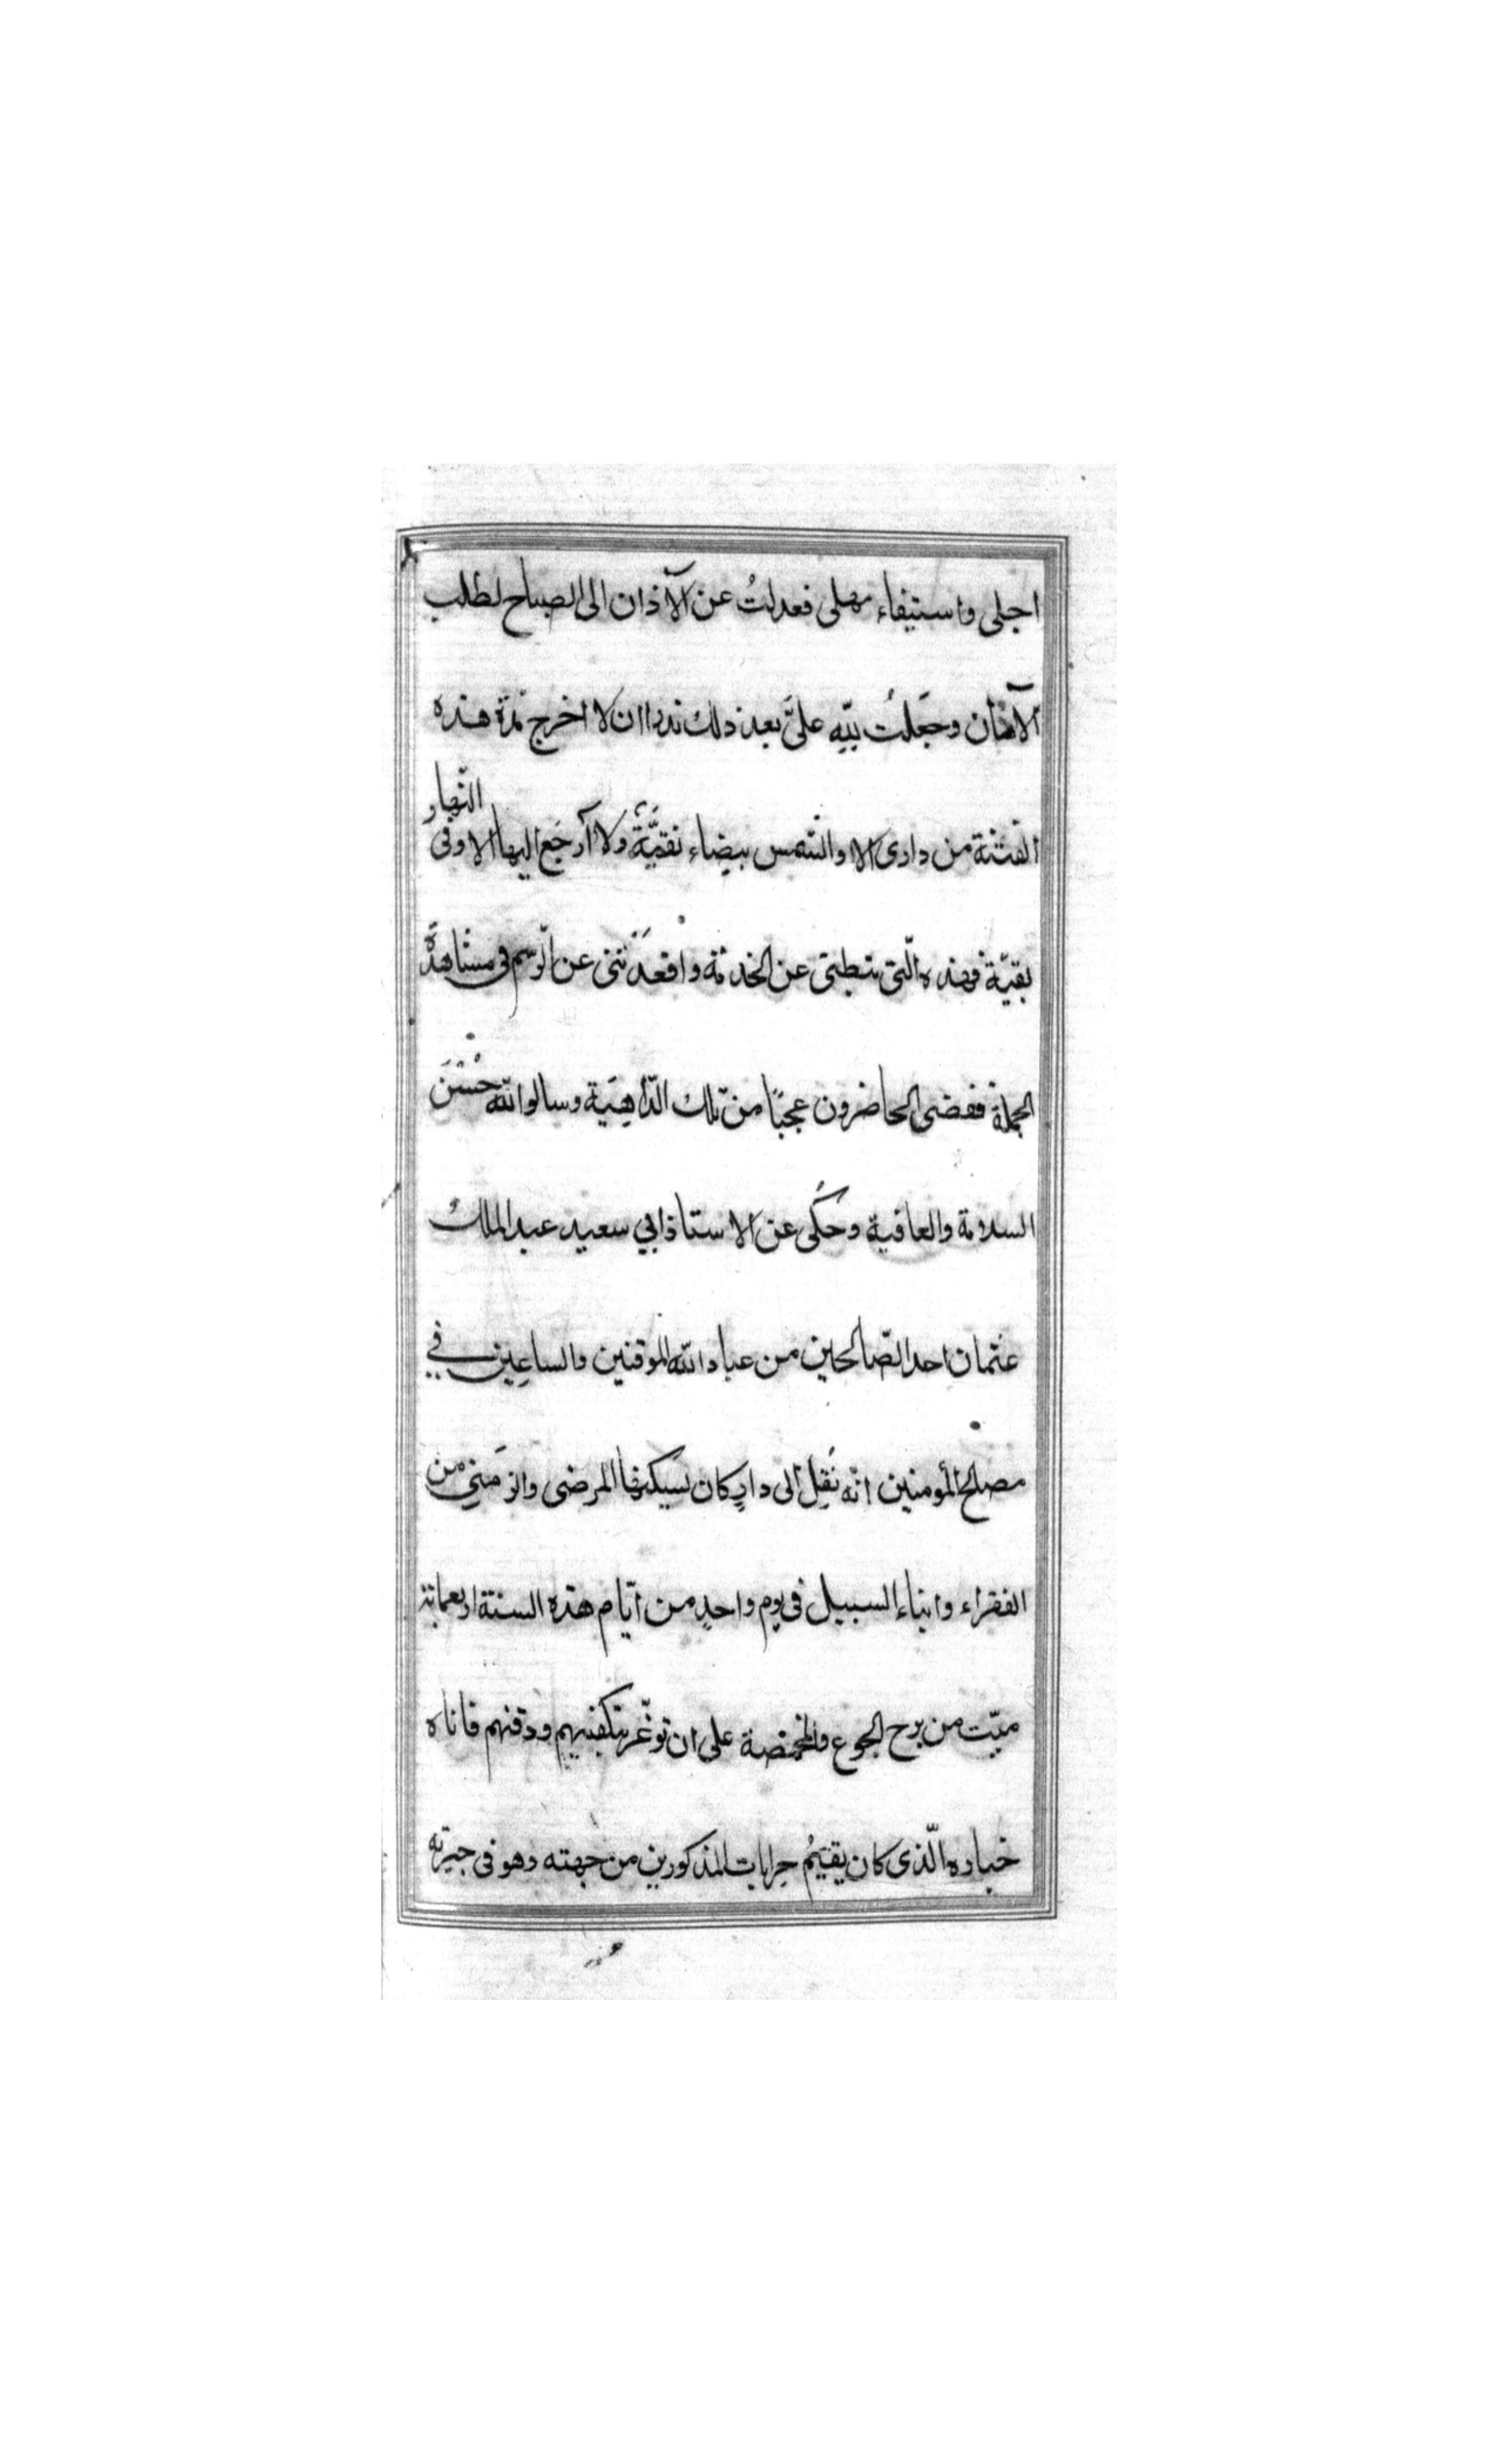 اجلى واستيفاء مهلى فعدلتُ عن الآذان الى الصباح لطلب
الآمان وجَعَلتُ لِلّهِ علىَّ بعد ذلك نذرا ان لا اخرج مدّة هذه
الفتنة من دارى الا والشمس بيضاء نقيَّةٌ ولا آرجَع اليها الا وفى النّهار
بقيّة فهذه الّتى ثبطتنى عن الخدمة واقعدَتْنى عن الرّسم فى مشاهدَة
الجملة فقضى الحاضرون عجبًا من تلك الدّاهِيَة وسالوا اللّه حُسْنَ
السلامة والعافية وحكَى عن الاستاذ ابي سعيد عبد الملك
عثمان احد الصّالحين من عباد اللّه الموقنين والساعِين في
مصلح المؤمنين انّه نَقِل الى دارٍ كان يسكنها المرضى والزمَنى من
الفقراء وابناء السبيل فى يوم واحدٍ من ايّام هذه السنة اربعمائة
ميّت من برح الجوع والمخمصة على ان توغّر بتكفينهم ودفنهم فاتاه
خبازه الّذى كان يقيَمُ جرايات المذكورين من جهته وهو فى حيرته